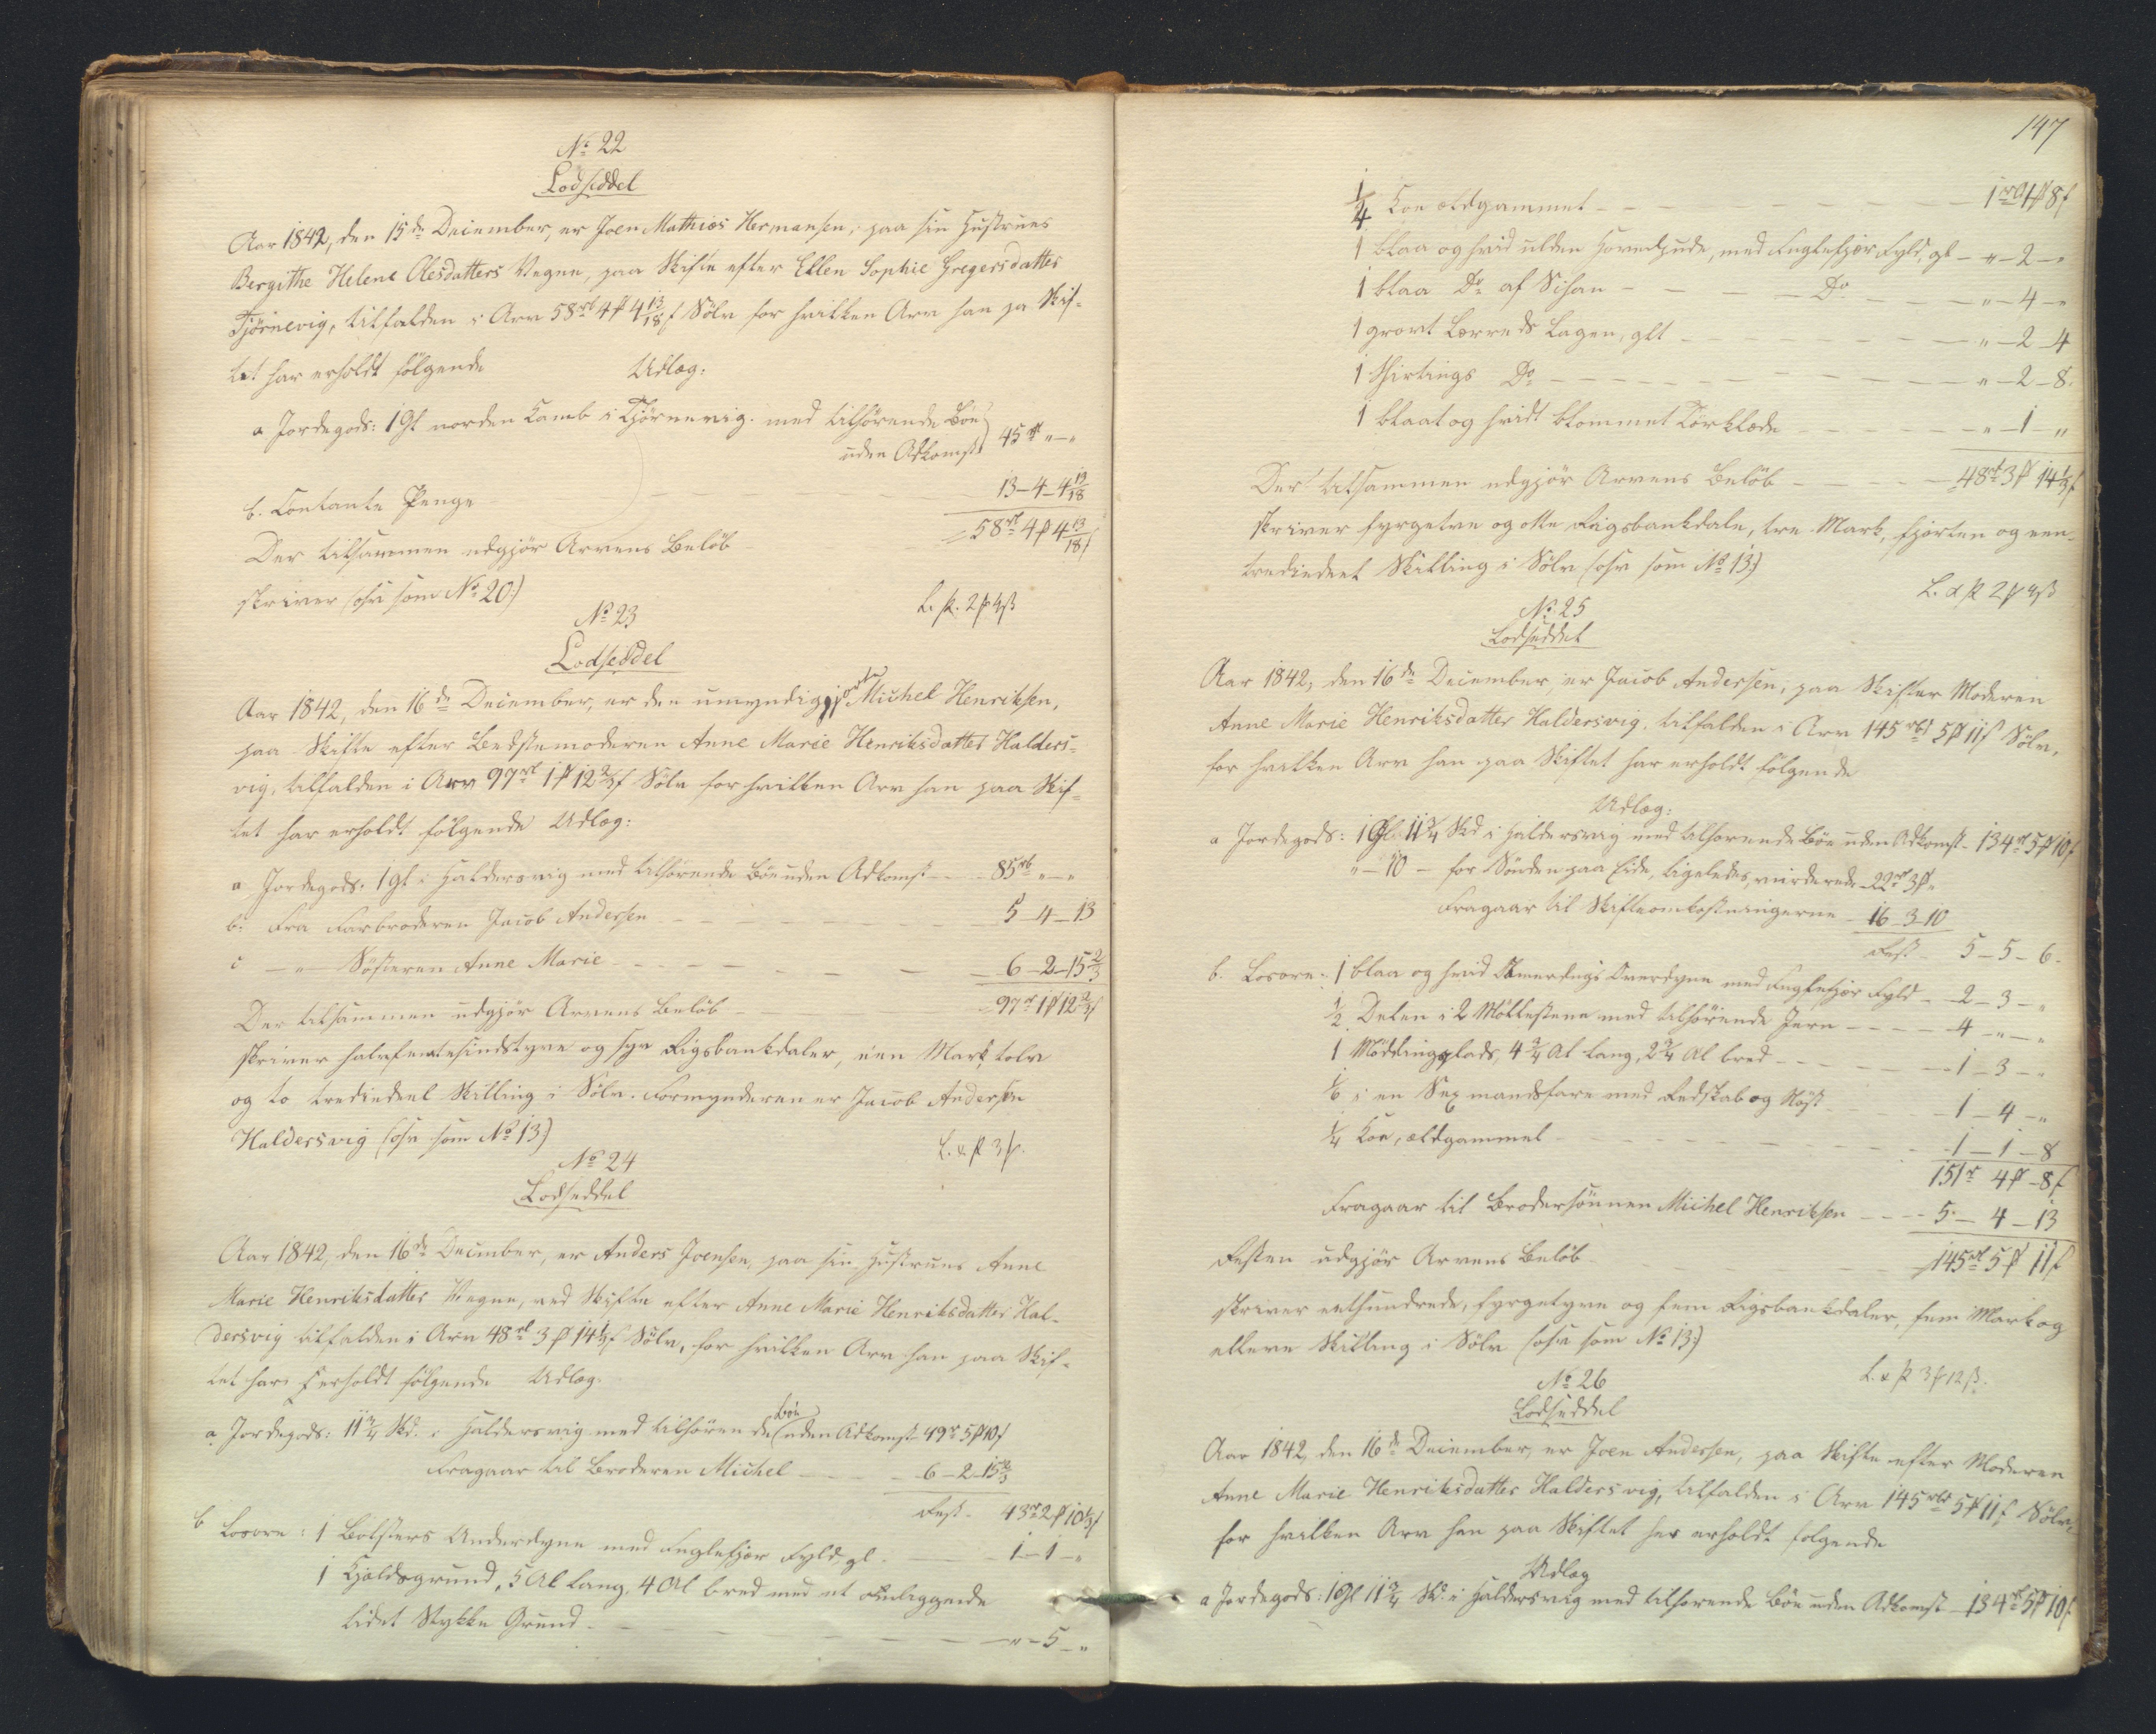 No 22
Lodseddel
Aar 1842, den 15de December, er Joen Mathias Hermansen, paa sin Hustrues
Bergithe Helene Olesdatters Vegne, paa Skifte efter Ellen Sophie Gregersdatter
Tjørnevig, tilfalden i Arv 58rb 4ß 4 13/18 s Sølv for hvilken Arv han pa Skif-
tet har erholdt følgende Udlæg:
a Jordegods: 1 Gl norden Kamb i Tjørnevig med tilhørende Bøe
uden Adkomst 45rb " - "
b. Contante Penge 13 - 4 - 4 13/18
Der tilsammen udgjør Arvens Beløb = 58rb 4ß 4 13/18 s
skriver (osv som No 20)
L. ß. 2ß 4ß
No 23
Lodseddel
Aar 1842, den 16de December, er den umyndige Michel Henriksen,
paa Skifte efter Bedstemoderen Anne Marie Henriksdatter Halders-
vig, tilfalden i Arv 97rb 1ß 12 2/3 s Sølv for hvilken Arv han paa Skif-
tet har erholdt følgende Udlæg:
a Jordegods: 1 Gl i Haldersvig med tilhørende Bøe uden Adkomst 85rb " - "
b. Fra Farbroderen Jacob Andersen 5 - 4 - 13
c - " - Søsteren Anne Marie 6 - 2 - 15 2/3
Der tilsammen udgjør Arvens Beløb = 97rb 1ß 12 2/3 s
skriver halvfemtesindstyve og syv Rigsbankdaler, een Mark, tolv
og to trediedeel Skilling i Sølv. Formynderen er Jacob Andersen
Haldersvig (osv som No 13)
L. & ß 3ß.
No 24
Lodseddel
Aar 1842, den 16de December, er Anders Joensen, paa sin Hustrues Anne
Marie Henriksdatter Vegne, ved Skifte efter Anne Marie Henriksdatter Hal-
dersvig tilfalden i Arv 48rb 3ß 14 1/3 s Sølv, for hvilken Arv han paa Skif-
tet har erholdt følgende Udlæg:
a. Jordegods: 11 3/4 Skd. i Haldersvig med tilhørende Bøe uden Adkomst 49rb 5ß 10s
Fragaar til Broderen Michel 6 - 2 - 15 2/3
Rest 43rb 2ß 10 1/3 s
b Løsøre: 1 Bolsters Underdyne med Fuglefjær Fyld, gl. 1 - 1 - "
1 Hjaldsgrund, 5 Al lang, 4 Al bred med et omliggende
lidet Stykke Grund " - 5 - "
147
1/4 Koe oldgammel 1rb 1ß 8s
1 blaa og hvid ulden Hovedpude, med Fuglefjær Fyld, gl " - 2 - "
1 blaa Do af Do " - 4 - "
1 grovt Lærreds Lagen, glt " - 2 - 4
1 Shirtings Do " - 2 - 8
1 blaat og hvidt blommet Tørklæde " - 1 - "
Der tilsammen udgjør Arvens Beløb = 48rb 3ß 14 1/3 s
skriver fyrgetve og otte Rigsbankdale, tre Mark, fjorten og een
trediedeel Skilling i Sølv (osv som No 13)
L. & ß 2ß 4ß
No 25
Lodseddel
Aar 1842, den 16de December, er Jacob Andersen, paa Skifter Moderen
Anne Marie Henriksdatter Haldersvig, tilfalden i Arv 145rbd 5ß 11s Sølv,
for hvilken Arv han paa Skiftet har erholdt følgende
Udlæg:
a Jordegods: 1 Gl. 11 3/4 Skd i Haldersvig med tilhørende Bøe uden Adkomst 134rb 5ß 10s
" - 10 - for Sønden paa Eide, ligeledes, vurderede 22rb 3ß "
Fragaar til Skifteomkostningerne 16 - 3 - 10
Rest 5 - 5 - 6
b. Løsøre: 1 blaa og hvid Overdyne med Fuglefjær Fyld 2 - 3 - "
1/2 Delen i 2 Møllestene med tilhørende Jern 4 - " - "
1 Møddingplads, 4 3/4 Al lang, 2 3/4 Al bred 1 - 3 - "
1/6 i en Sexmandsfare med Redskab og Nøst 1 - 4 - "
1/4 Koe, oldgammel 1 - 1 - 8
151rb 4ß 8s
Fragaar til Brodersønnen Michel Henriksen 5 - 4 - 13
Resten udgjør Arvens Beløb 145rb 5ß 11s
skriver eethundrede, fyrgetyve og fem Rigsbankdaler, fem Mark og
elleve Skilling i Sølv (osv som No 13)
L. & ß 3ß 12ß.
No 26
Lodseddel
Aar 1842, den 16de December, er Joen Andersen, paa Skifte efter Moderen
Anne Marie Henriksdatter Haldersvig, tilfalden i Arv 145rbd 5ß 11s Sølv,
for hvilken Arv han paa Skiftet har erholdt følgende
Udlæg
a Jordegods: 1 Gl 11 3/4 Sk. i Haldersvig med tilhørende Bøe uden Adkomst 134rb 5ß 10s